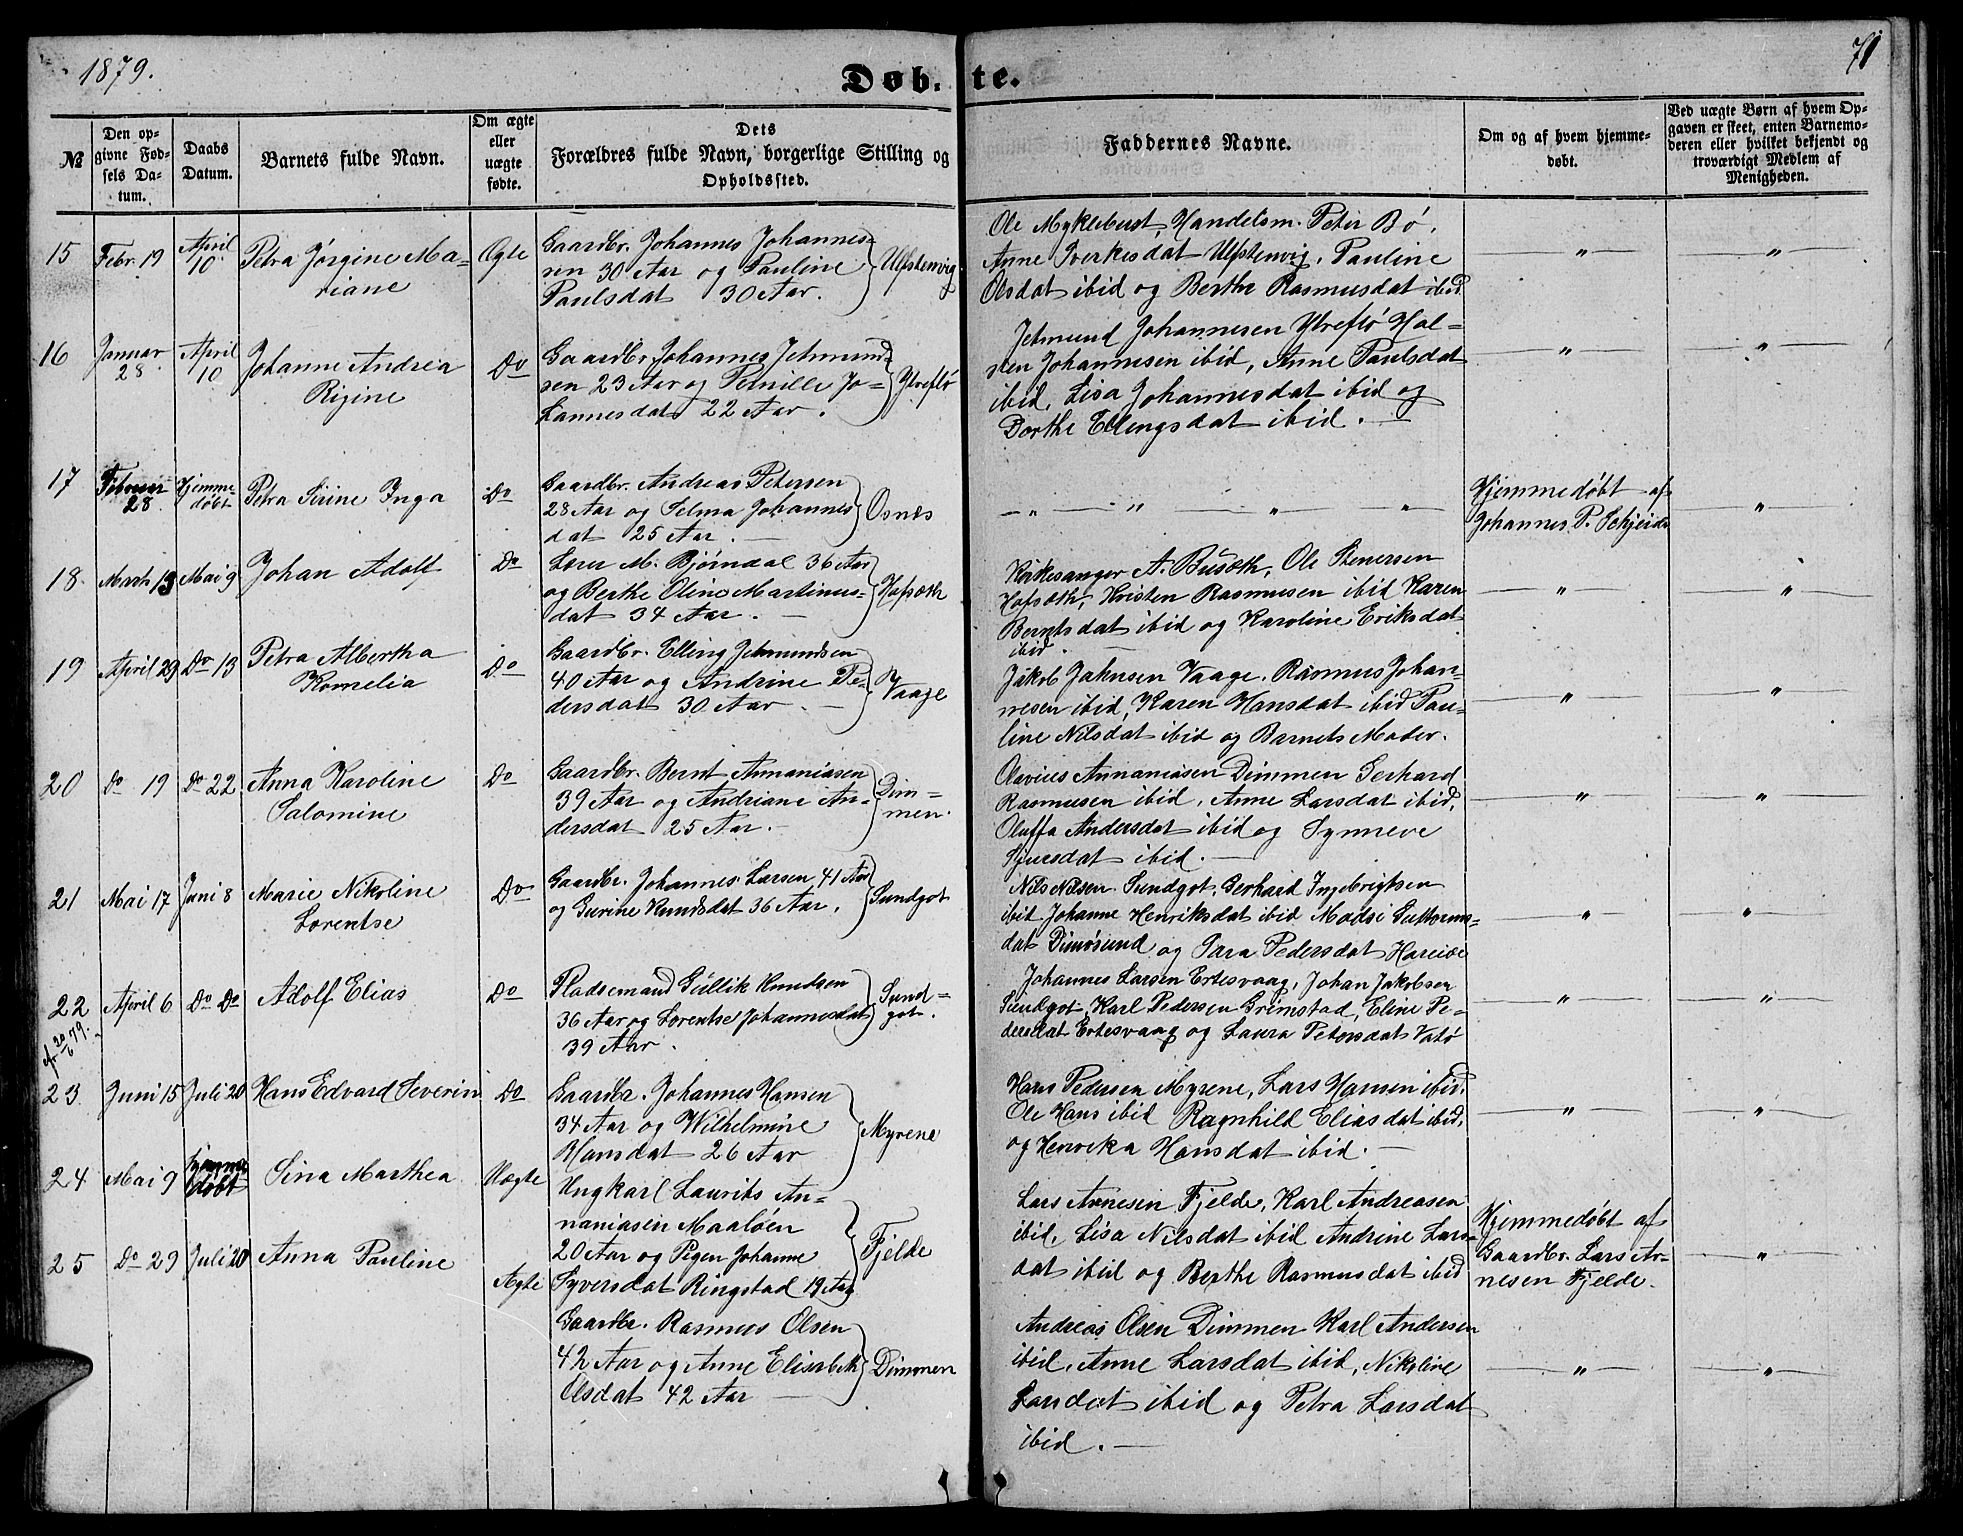 1879.
Døb- te.
71
№
Den op-
givne Fød-
sels Da-
tum.
Daabs
Datum.
Barnets fulde Navn.
Om ægte
eller
uægte
fødte.
Dets
Forældres fulde Navn, borgerlige Stilling og
Opholdssted.
Faddernes Navne.
Om og af hvem hjemme-
døbt.
Ved uægte Børn af hvem Op-
gaven er skeet, enten Barnemo-
deren eller hvilket bekjendt og
troværdigt Medlem af
Menigheden.
15
Febr. 19
April
10
Petra Jørgine Ma-
riane
Ægte
Gaardbr. Johannes Johannes-
sen 30 Aar og Pauline
Paulsdat 30 Aar.
Ulfstenvig
Ole Myklebust, Handelsm. Peter Bø,
Anne Sverkesdat Ulfstenvig, Pauline
Olsdat ibid og Berthe Rasmusdat ibid
16
Januar
28
April
10
Johanne Andrea
Rigine
Do
Gaardbr. Johannes Jetmund-
sen 23 Aar og Pernille Jo-
hannesdat 22 Aar.
Ytreflø
Jetmund Johannesen Ytreflø Hal-
sten Johannesen ibid, Anne Paulsdat
ibid, Lisa Johannesdat ibid og
Dorthe Ellengsdat ibid.
17
Februar
28
Hjemme-
døbt
Petra Sirine Inga
Do
Gaardbr. Andreas Petersen
28 Aar og Selma Johannes
dat 25 Aar.
Osnes
Hjemmedøbt af
Johannes P. Schjeide
18
Marts 13
Mai 9
Johan Adolf
Do
Lærer M. Bjørndal 36 Aar
og Berthe Oline Martinus-
dat 34 Aar.
Hofsæth
Kirkesanger A. Busæth, Ole Stenersen
Hofsæth, Kristen Rasmusen ibid Karen
Berntsdat ibid og Karoline Eriksdat
ibid.
19
April 29
Do 13
Petra Albertha
Kornelia
Do
Gaardbr. Elling Jetmundsen
40 Aar og Andrine Pe-
dersdat 30 Aar.
Vaage
Jakob Jahnsen Vaage, Rasmus Johan-
nesen ibid, Karen Hansdat ibid Pau-
line Nilsdat ibid og Barnets Moder.
20
Do 19
Do 22
Anna Karoline
Salomine
Do
Gaardbr. Bernt Annaniasen
39 Aar og Andriane An-
dersdat 25 Aar.
Dim-
men.
Olavius Annaniasen Dimmen Gerhard
Rasmusen ibid, Anne Larsdat ibid,
Oluffa Andersdat ibid og Synneve
Sjursdat ibid.
21
Mai 17
Juni 8
Marie Nikoline
Lorentse
Do
Gaardbr. Johannes Larsen 41 Aar
og Gurine Knudsdat 36 Aar.
Sundgot
Nils Nilsen Sundgot, Gerhard Ingebrigtsen
ibid Johanne Henriksdat ibid Madsi Guttorms-
dat Dimøsund og Sara Pedersdat Hareide
22
April 6
Do Do
Adolf Elias
Do
Pladsemand Gullik Knudsen
36 Aar og Lorentse Johannesdat
39 Aar.
Sund-
got.
Johannes Larsen Ertesvaag, Johan Jakobsen
Sundgot, Karl Pedersen Grimstad, Eline Pe-
dersdat Ertesvaag og Laura Petersdat Vatø
23
Juni 15
Juli 20
Hans Edvard Severin
Do
Gaardbr. Johannes Hansen
34 Aar og Wilhelmine
Hansdat 26 Aar
Myrene
Hans Pedersen Myrene, Lars Hansen ibid,
Ole Hans ibid Ragnhild Eliasdat ibid,
og Henrika Hansdat ibid.
24
Mai 9
Hjemme
døbt
Sina Marthea
Uægte
Ungkarl Laurits An-
naniasen Maaløen
20 Aar og Pigen Johanne
Syversdat Ringstad 19 Aar
Fjelde
Lars Arnesen Fjelde, Karl Andreasen
ibid, Lisa Nilsdat ibid Andrine Lars-
dat ibid og Berthe Rasmusdat ibid
Hjemmedøbt af
Gaardbr. Lars Ar-
nesen Fjelde.
25
Do 29
Juli 20
Anna Pauline
Ægte
Gaardbr. Rasmus Olsen
42 Aar og Anne Elisabeth
Olsdat 42 Aar
Dimmen
Andreas Olsen Dimmen Karl Andersen
ibid, Anne Larsdat ibid, Nikoline
Larsdat ibid og Petra Larsdat
ibid.